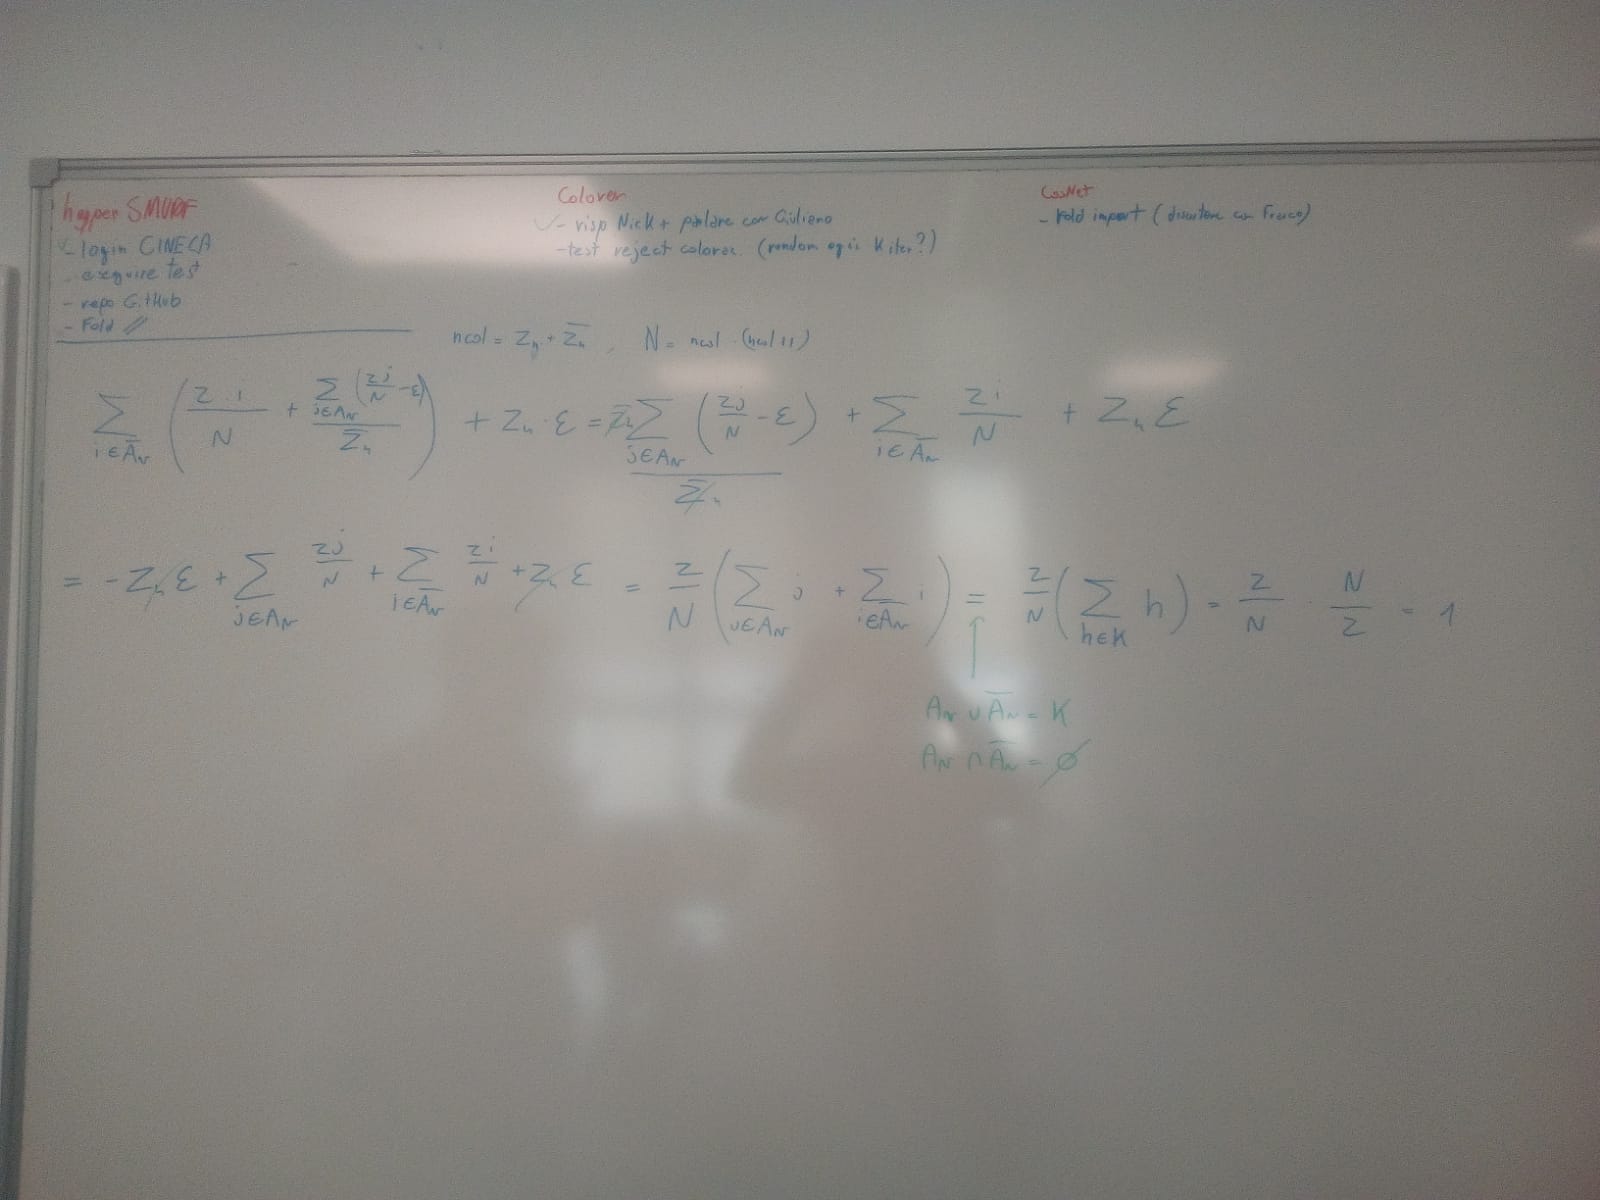 hyper SMURF
- login CINECA
- eseguire test
- repo GitHub
- Fold //
Colorer
- risp Nick + parlare con Giuliano
- test reject colorer. (random ogni K iter?)
CosNet
- Fold import (discutere con Frasco)
ncol = Z_n + \overline{Z_n} , N = ncol · (ncol+1)
\sum_{i∈\overline{A_N}} ( \frac{2·i}{N} + \frac{\sum_{j∈A_N} (\frac{2j}{N} - ε)}{\overline{Z_n}} ) + Z_n · ε = \overline{Z_n} \frac{\sum_{j∈A_N} (\frac{2j}{N} - ε)}{\overline{Z_n}} + \sum_{i∈\overline{A_N}} \frac{2i}{N} + Z_n ε
= - Z_n ε + \sum_{j∈A_N} \frac{2j}{N} + \sum_{i∈\overline{A_N}} \frac{2i}{N} + Z_n ε = \frac{2}{N} ( \sum_{j∈A_N} j + \sum_{i∈\overline{A_N}} i ) = \frac{2}{N} ( \sum_{h∈K} h ) = \frac{2}{N} · \frac{N}{2} = 1
A_N ∪ \overline{A_N} = K
A_N ∩ \overline{A_N} = ∅